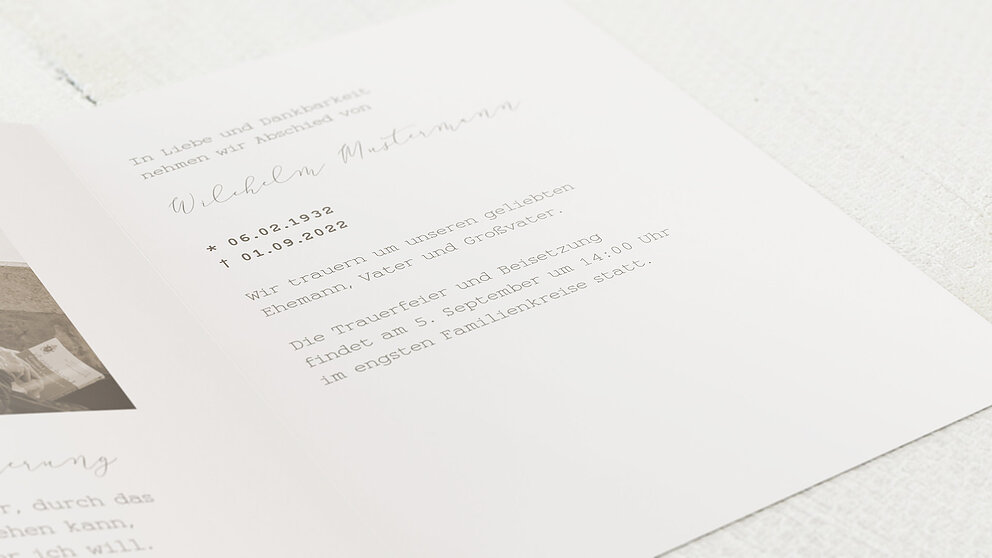 erung
r, durch das
ehen kann,
er ich will.
In Liebe und Dankbarkeit
nehmen wir Abschied von
Wilehelm Mustermann
* 06.02.1932
† 01.09.2022
Wir trauern um unseren geliebten
Ehemann, Vater und Großvater.
Die Trauerfeier und Beisetzung
findet am 5. September um 14:00 Uhr
im engsten Familienkreise statt.